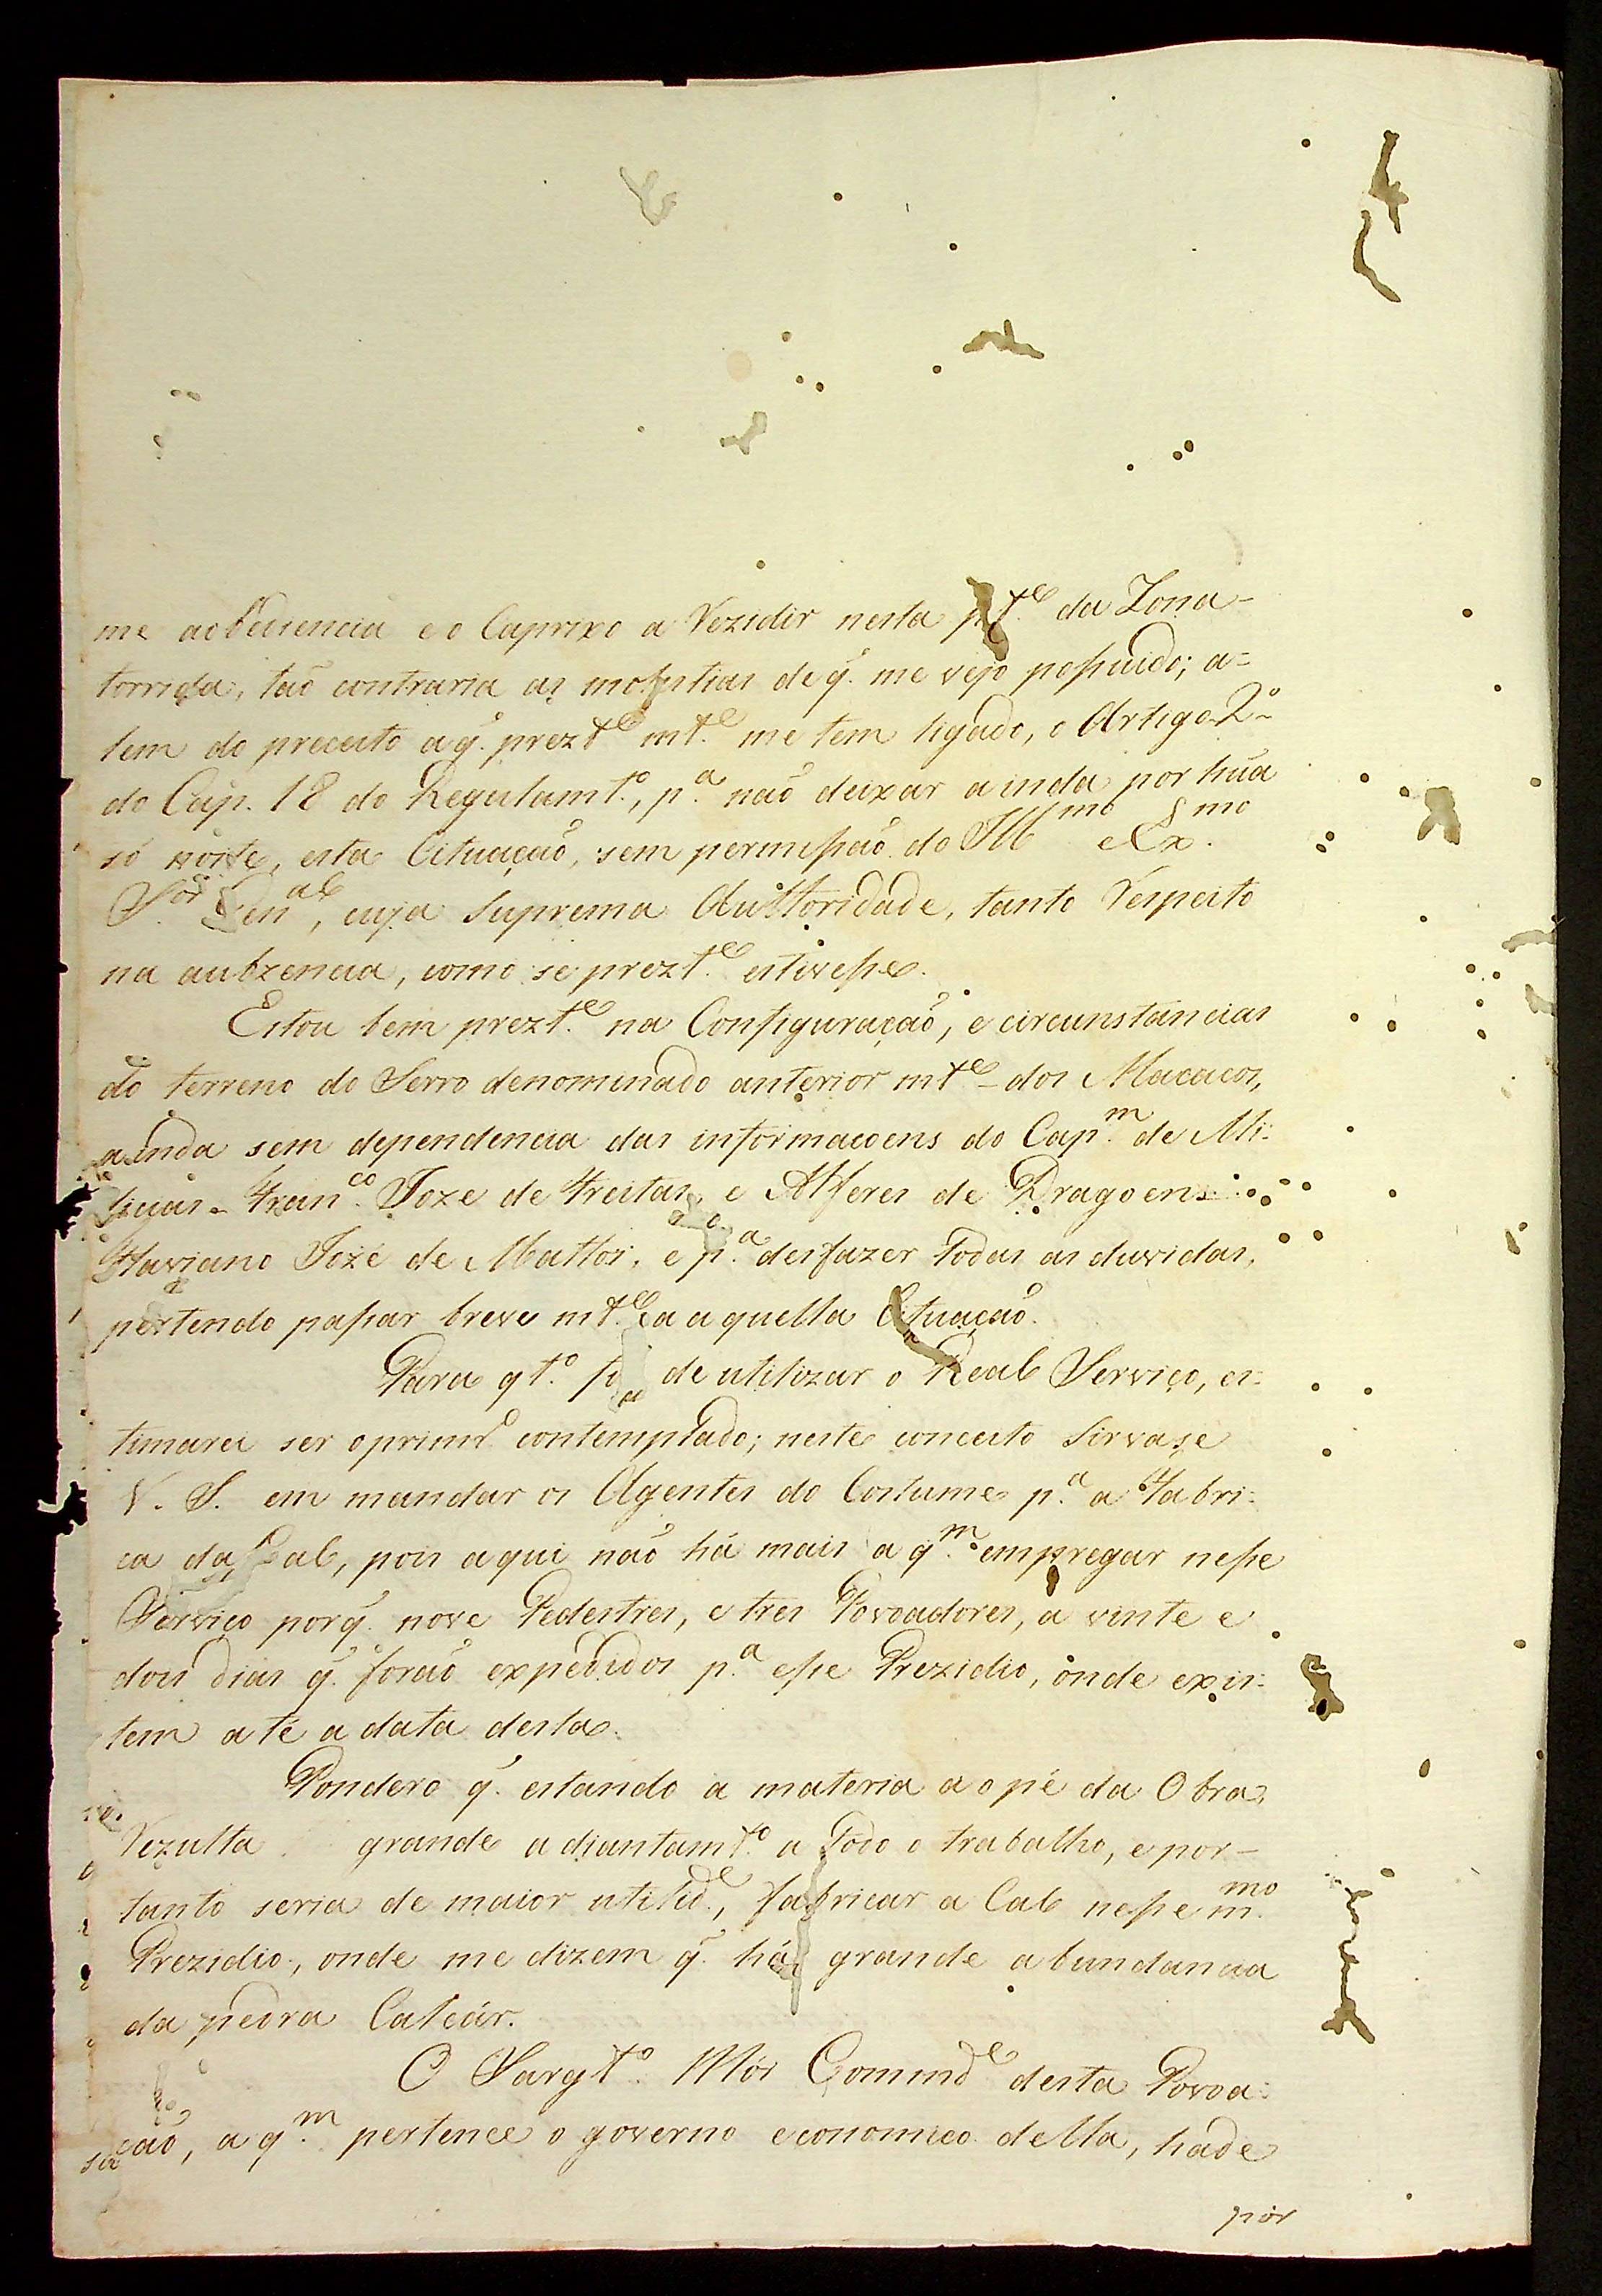 me aobediencia e o Caprixo a Rezidir nesta pte. da Zona-
torrida, taõ contraria as molestias de q̃. me vejo possuido; a=
lem do preceito a q̃. prezte.mte. me tem ligado, o Artigo 2º
do Cap. 18 do Regulamto., pa. naõ deixar ainda por hũa
só noite, esta Cituaçaõ, sem permissaõ do Illmo e Exmo.
Sor. Genal, cuja Suprema Authoridade, tanto Respeito
na aubzencia, como se prezte. estivesse.
Estou bem prezte. na Configuraçaõ, e circunstancias
do terreno do Serro denominado anteriormte- dos Macacos,
ainda sem dependencia das informacoens do Capm. de Mi:
licias- Franco. Joze de Freitas, e Alferes de Dragoens
Flaviano Jozé de Mattos, e pa. desfazer todas as duvidas,
pertendo passar brevemte. a aquella Cituaçaõ.
Para qto. de utilizar o Real Serviço, es:
timarei ser o primro contemplado; neste conceito Sirvase
V. S. em mandar os Agentes do Costume pa. a Fabri:
ca da Cal, pois aqui naõ há mais a qm. empregar nesse
Serviço porq̃. nove Pedestres, e tres Povoadores, a vinte e
dois dias q̃. foraõ expedidos pa. esse Prezidio, onde exis:
tem até a data desta.
Pondero q̃. estando a materia ao pé da Obra,
Rezulta grande adiantamto. a todo o trabalho, e por-
tanto seria de maior utilide., fabricar a Cal nesse mmo.
Prezidio, onde me dizem q̃. há grande abundancia
da pedra Calcár.
O Sargto. Mór Commde desta Povoa:
çaõ, a qm. pertence o governo economico della, hade
por